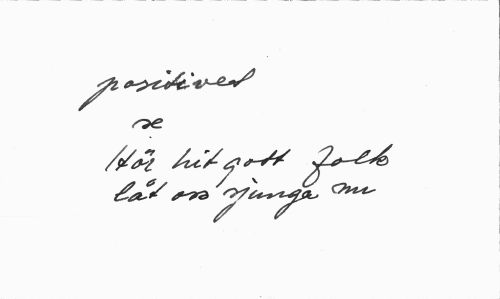 positivet
se
Hör hit gott folk
låt oss sjunga nu